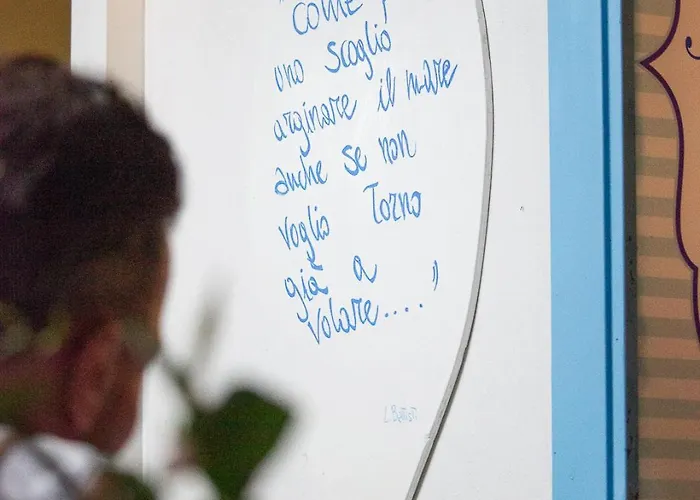 "COME
uno scoglio
arginare il mare
anche se non
voglio Torno
già a
volare...."
L. Battisti